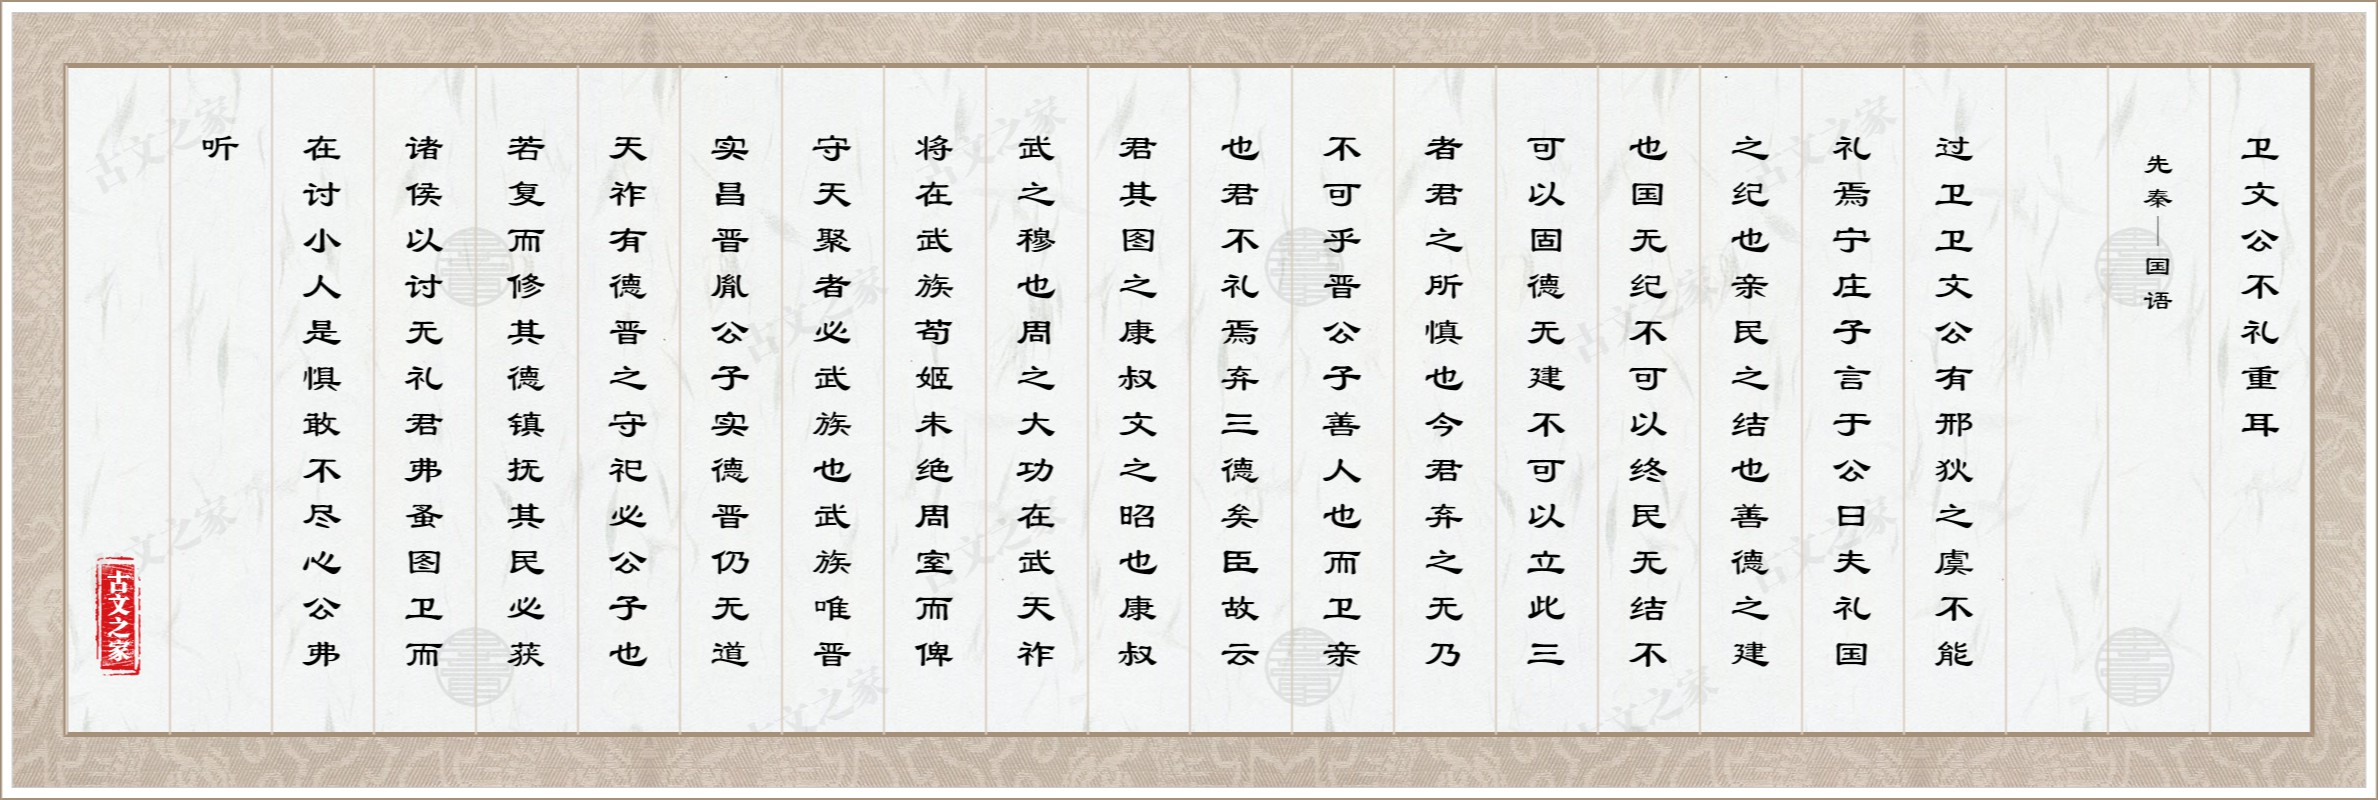 卫文公不礼重耳
先秦—国语
过卫卫文公有邢狄之虞不能
礼焉宁庄子言于公曰夫礼国
之纪也亲民之结也善德之建
也国无纪不可以终民无结不
可以固德无建不可以立此三
者君之所慎也今君弃之无乃
不可乎晋公子善人也而卫亲
也君不礼焉弃三德矣臣故云
君其图之康叔文之昭也康叔
武之穆也周之大功在武天祚
将在武族苟姬未绝周室而俾
守天聚者必武族也武族唯晋
实昌晋胤公子实德晋仍无道
天祚有德晋之守祀必公子也
若复而修其德镇抚其民必获
诸侯以讨无礼君弗蚤图卫而
在讨小人是惧敢不尽心公弗
听
古文之家